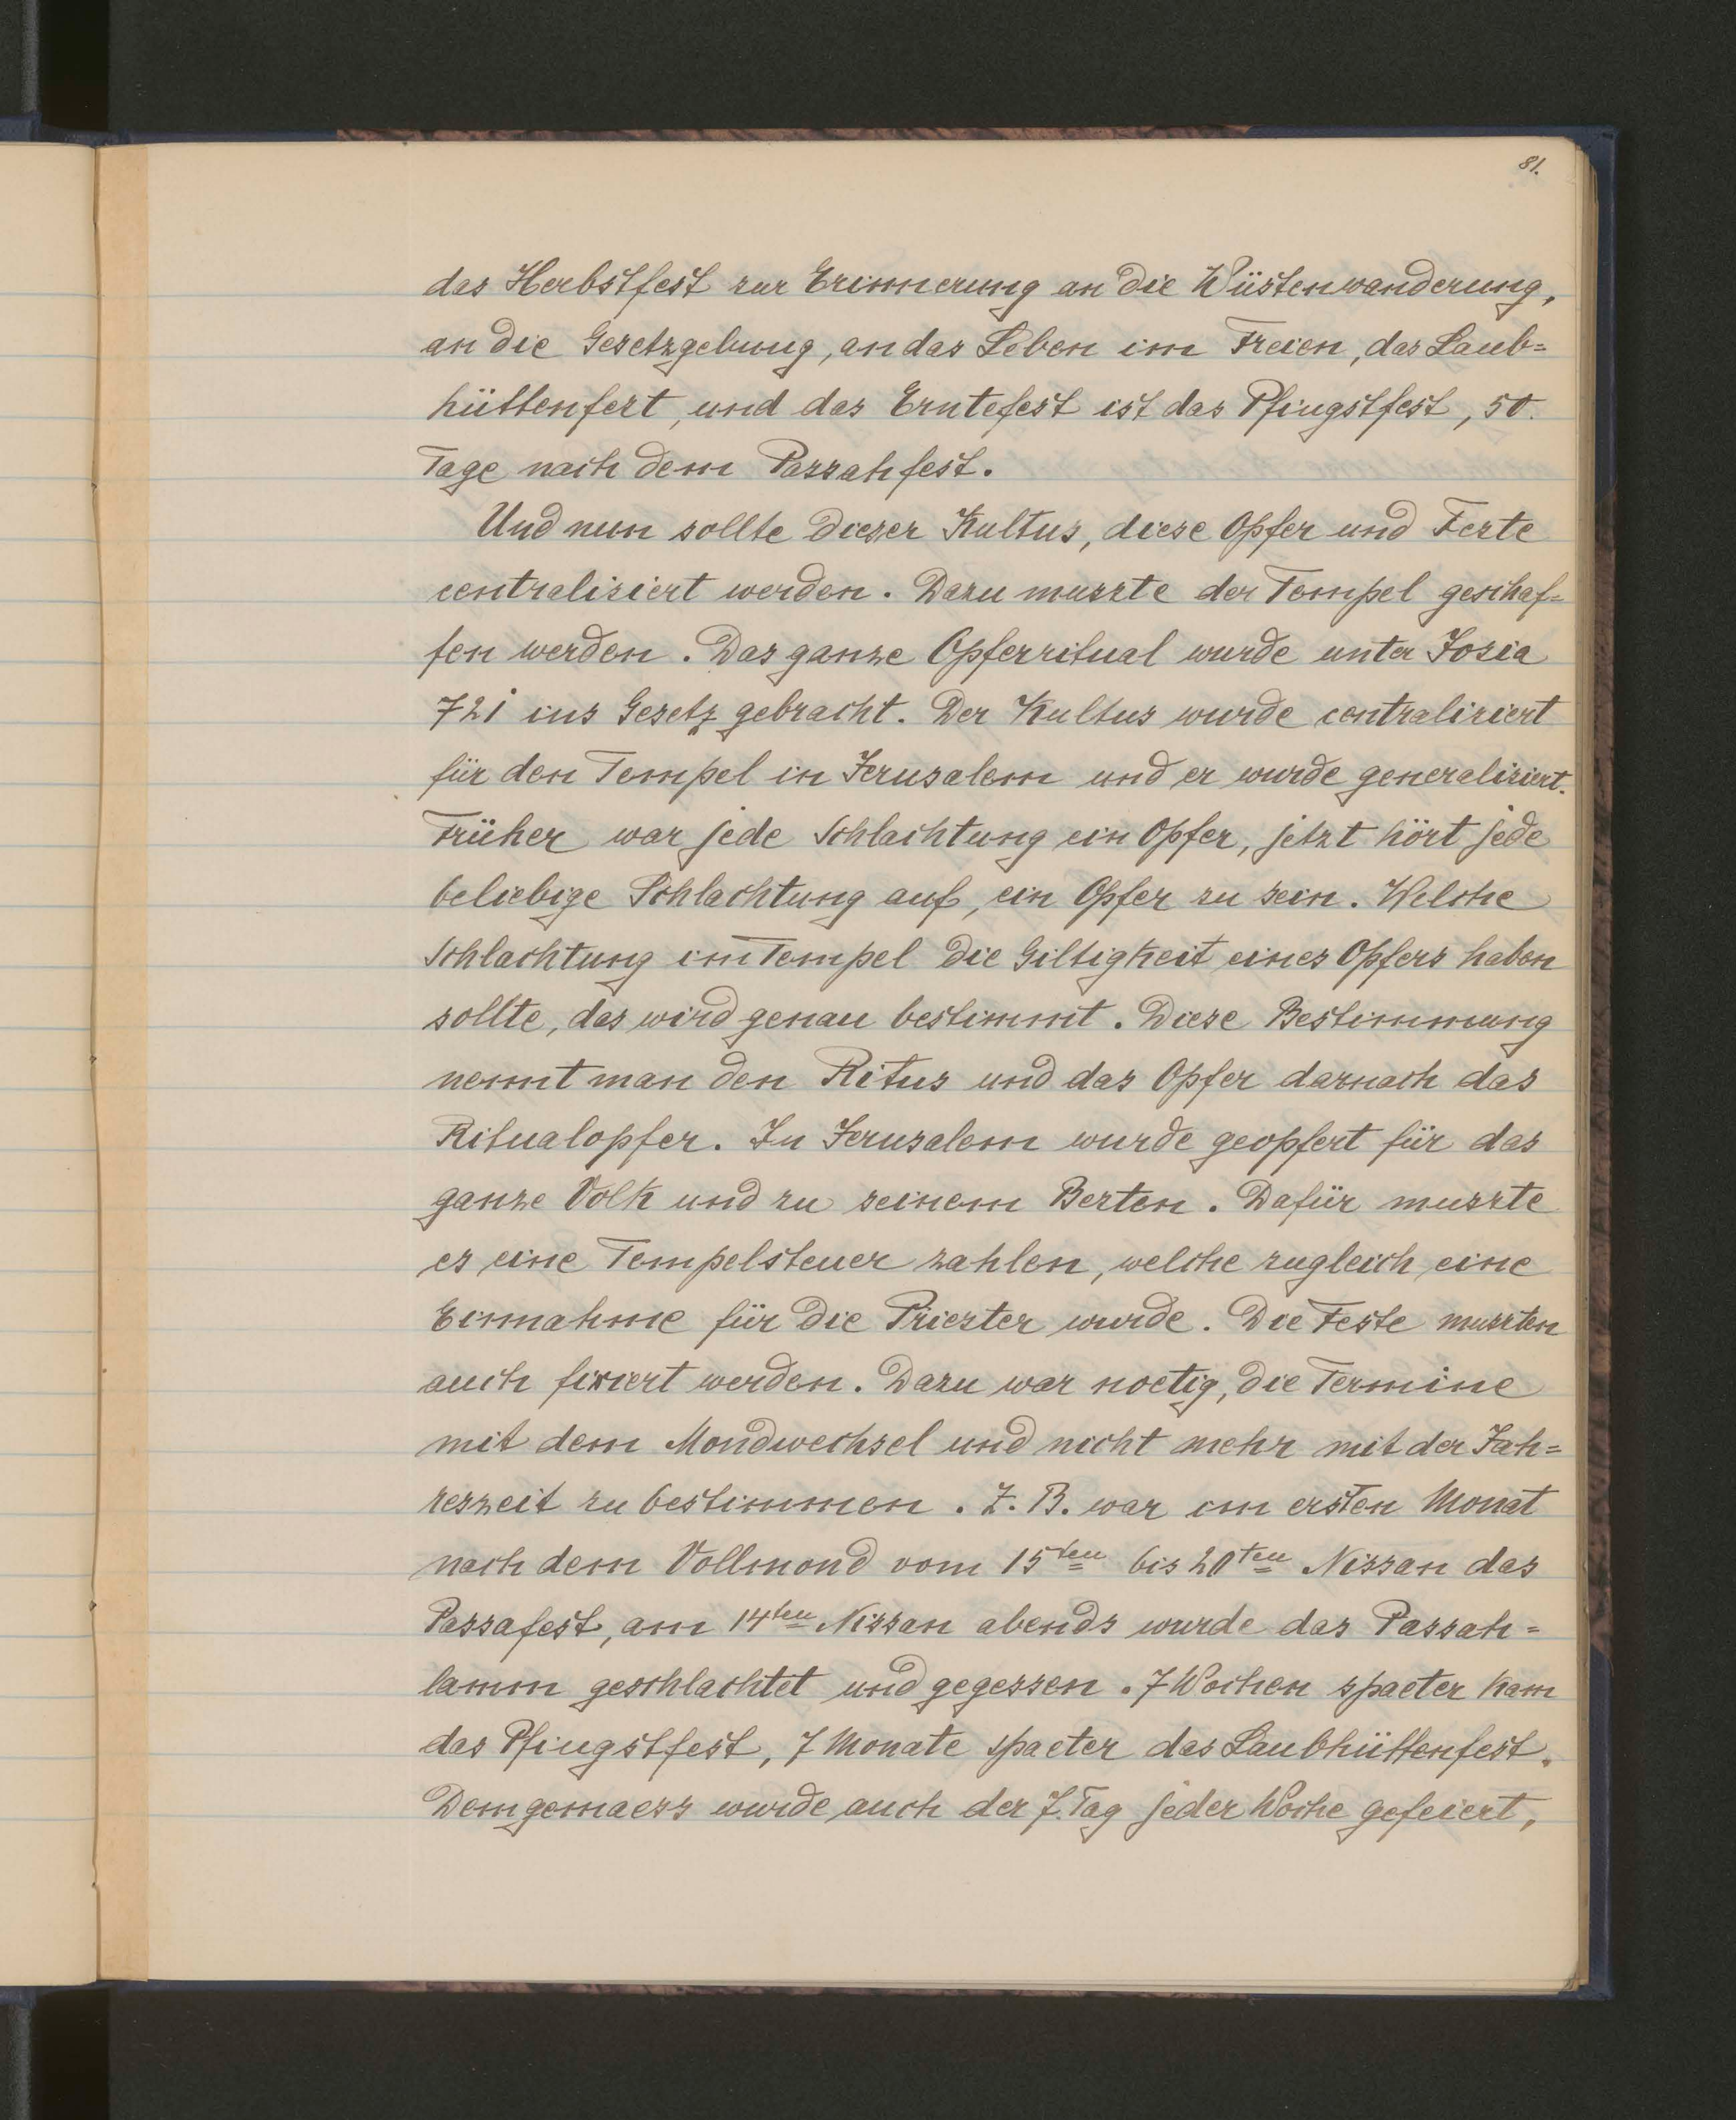 81.
das Herbstfest zur Erinnerung an die Wüstenwanderung,
an die Gesetzgebung, an das Leben im Freien, das Laub=
hüttenfest, und das Erntefest ist das Pfingstfest, 50.
Tage nach dem Passahfest.
Und nun sollte dieser Kultus, diese Opfer und Feste
centralisiert werden. Dazu musste der Tempel geschaf=
fen werden. Das ganze Opferritual wurde unter Josia
721 ins Gesetz gebracht. Der Kultus wurde centralisiert
für den Tempel in Jerusalem und er wurde generalisiert.
Früher war jede Schlachtung ein Opfer, jetzt hört jede
beliebige Schlachtung auf, ein Opfer zu sein. Welche
Schlachtung im Tempel die Giltigkeit eines Opfers haben
sollte, das wird genau bestimmt. Diese Bestimmung
nennt man den Ritus und das Opfer darnach das
Ritualopfer. In Jerusalem wurde geopfert für das
ganze Volk und zu seinem Besten. Dafür musste
es eine Tempelsteuer zahlen, welche zugleich eine
Einnahme für die Priester wurde. Die Feste mussten
auch fixiert werden. Dazu war noetig, die Termine
mit dem Mondwechsel und nicht mehr mit der Jah=
reszeit zu bestimmen. Z. B. war im ersten Monat
nach dem Vollmond vom 15ten bis 20ten Nissan das
Passafest, am 14ten Nissan abends wurde das Passah=
lamm geschlachtet und gegessen. 7 Wochen spaeter kam
das Pfingstfest, 7 Monate spaeter das Laubhüttenfest.
Demgemaess wurde auch der 7. Tag jeder Woche gefeiert,